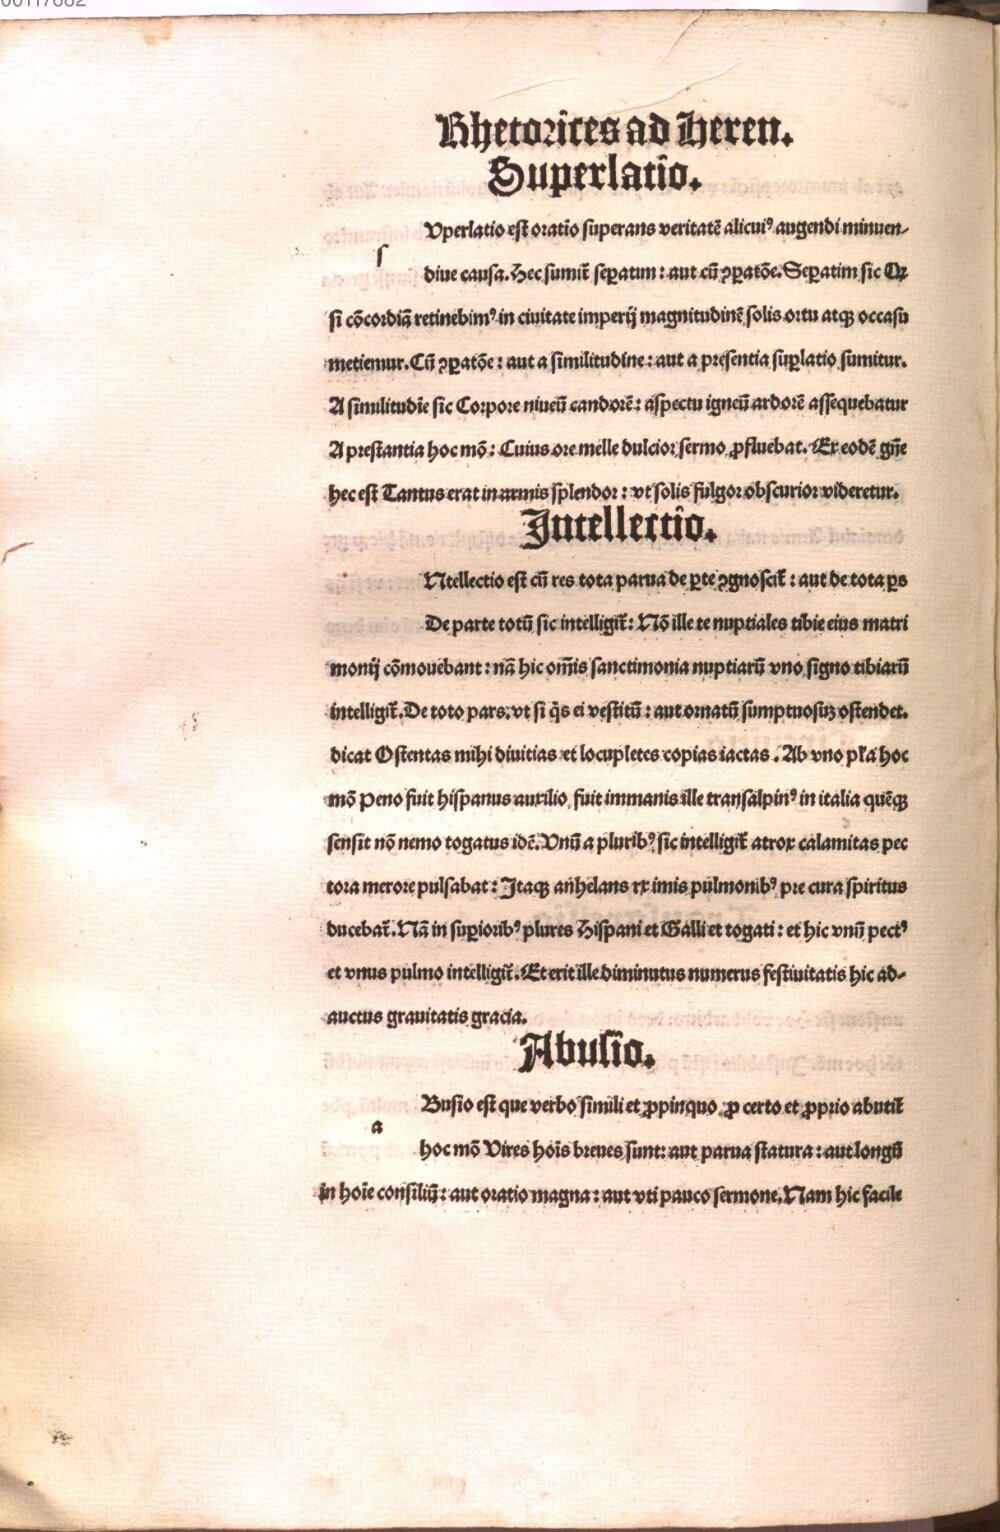 00117682
Rhetorices ad Heren.
Superlatio.
s
Vperlatio est oratio superans veritatē alicuiꝰ augendi minuen-
diue causa. Hec sumit̃ seꝑatun : aut cū ꝯꝑatōe. Seꝑatim sic Qꝛ
si cōcordiā retinebimꝰ in ciuitate imperij magnitudinē solis ortu atqꝫ occasu
metiemur. Cū ꝯꝑatōe : aut a similitudine : aut a presentia suꝑlatio sumitur.
A similitudīe sic Corpore niueū candorē : aspectu igneū ardorē assequebatur
A prestantia hoc mō : Cuius ore melle dulcior sermo ꝓfluebat. Ex eodē gn̄e
hec est Tantus erat in armis splendor : vt solis fulgor obscurior videretur.
Intellectio.
Ntellectio est cū res tota parua de ꝑte ꝯgnoscit̃ : aut de tota ꝑs
De parte totū sic intelligit̃ : Nō ille te nuptiales tibie eius matri
monij cōmouebant : nā hic om̄is sanctimonia nuptiarū vno signo tibiarū
intelligit̃. De toto pars. vt si q̄s ei vestitū : aut ornatū sumptuosuꝫ ostendet.
dicat Ostentas mihi diuitias et locupletes copias iactas . Ab vno pl̃a hoc
mō Peno fuit hispanus auxilio fuit immanis ille transalpinꝰ in italia quēqꝫ
sensit nō nemo togatus idē. Vnū a pluribꝰ sic intelligit̃ atrox calamitas pec
tora merore pulsabat : Itaqꝫ anhelans rx imis pulmonibꝰ pre cura spiritus
ducebat̃. Nā in suꝑioribꝰ plures Hispani et Galli et togati : et hic vnū pectꝰ
et vnus pulmo intelligit̃. Et erit ille diminutus numerus festiuitatis hic ad-
auctus grauitatis gracia.
Abusio.
a
Busio est que verbo simili et ꝓpinquo ꝓ certo et ꝓprio abutit̃
hoc mō Vires hoīs breues sunt : aut parua statura : aut longū
in hoīe consiliū : aut oratio magna : aut vti pauco sermone. Nam hic facile